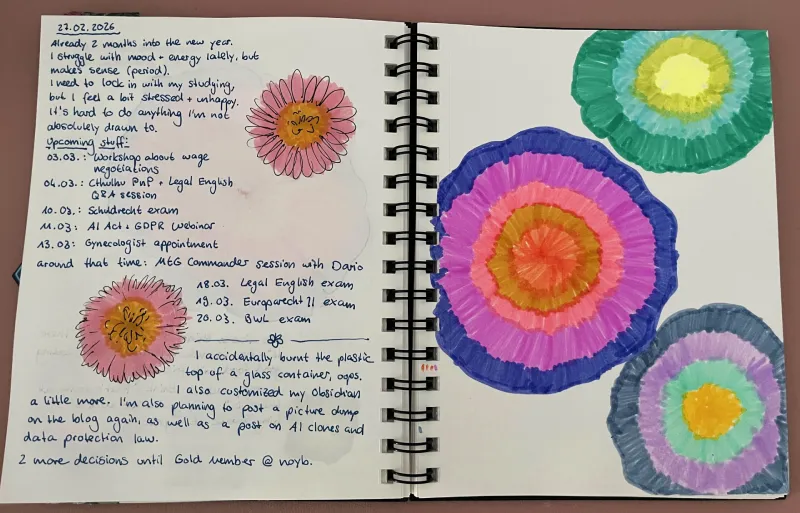 27.02.2026
Already 2 months into the new year.
I struggle with mood + energy lately, but
makes sense (period).
I need to lock in with my studying,
but I feel a bit stressed + unhappy.
It's hard to do anything I'm not
absolutely drawn to.
Upcoming stuff:
03.03.: Workshop about wage
negotiations
04.03.: Cthulhu PnP + Legal English
Q&A session
10.03.: Schuldrecht exam
11.03: AI Act + GDPR Webinar
13.03: Gynecologist appointment
around that time: MtG Commander session with Dario
18.03. Legal English exam
19.03. Europarecht II exam
20.03. BWL exam
I accidentally burnt the plastic
top of a glass container, oops.
I also customized my Obsidian
a little more. I'm also planning to post a picture dump
on the blog again, as well as a post on AI clones and
data protection law.
2 more decisions until Gold Member @ noyb.